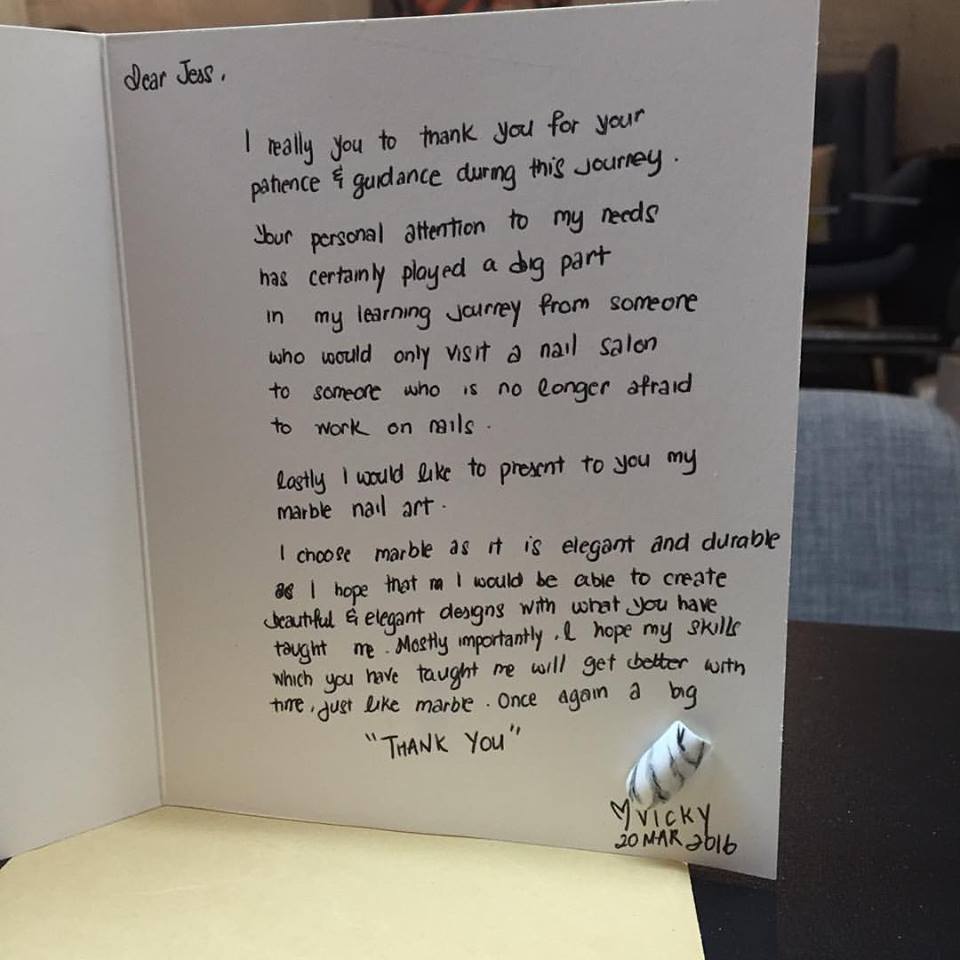 Dear Jess,
I really you to thank you for your
patience & guidance during this journey.
Your personal attention to my needs
has certainly played a big part
in my learning journey from someone
who would only visit a nail salon
to someone who is no longer afraid
to work on nails.
Lastly I would like to present to you my
marble nail art.
I choose marble as it is elegant and durable
as I hope that I would be able to create
beautiful & elegant designs with what you have
taught me. Mostly importantly, I hope my skills
which you have taught me will get better with
time, just like marble. Once again a big
"THANK YOU"
♡ VICKY
20 MAR 2016